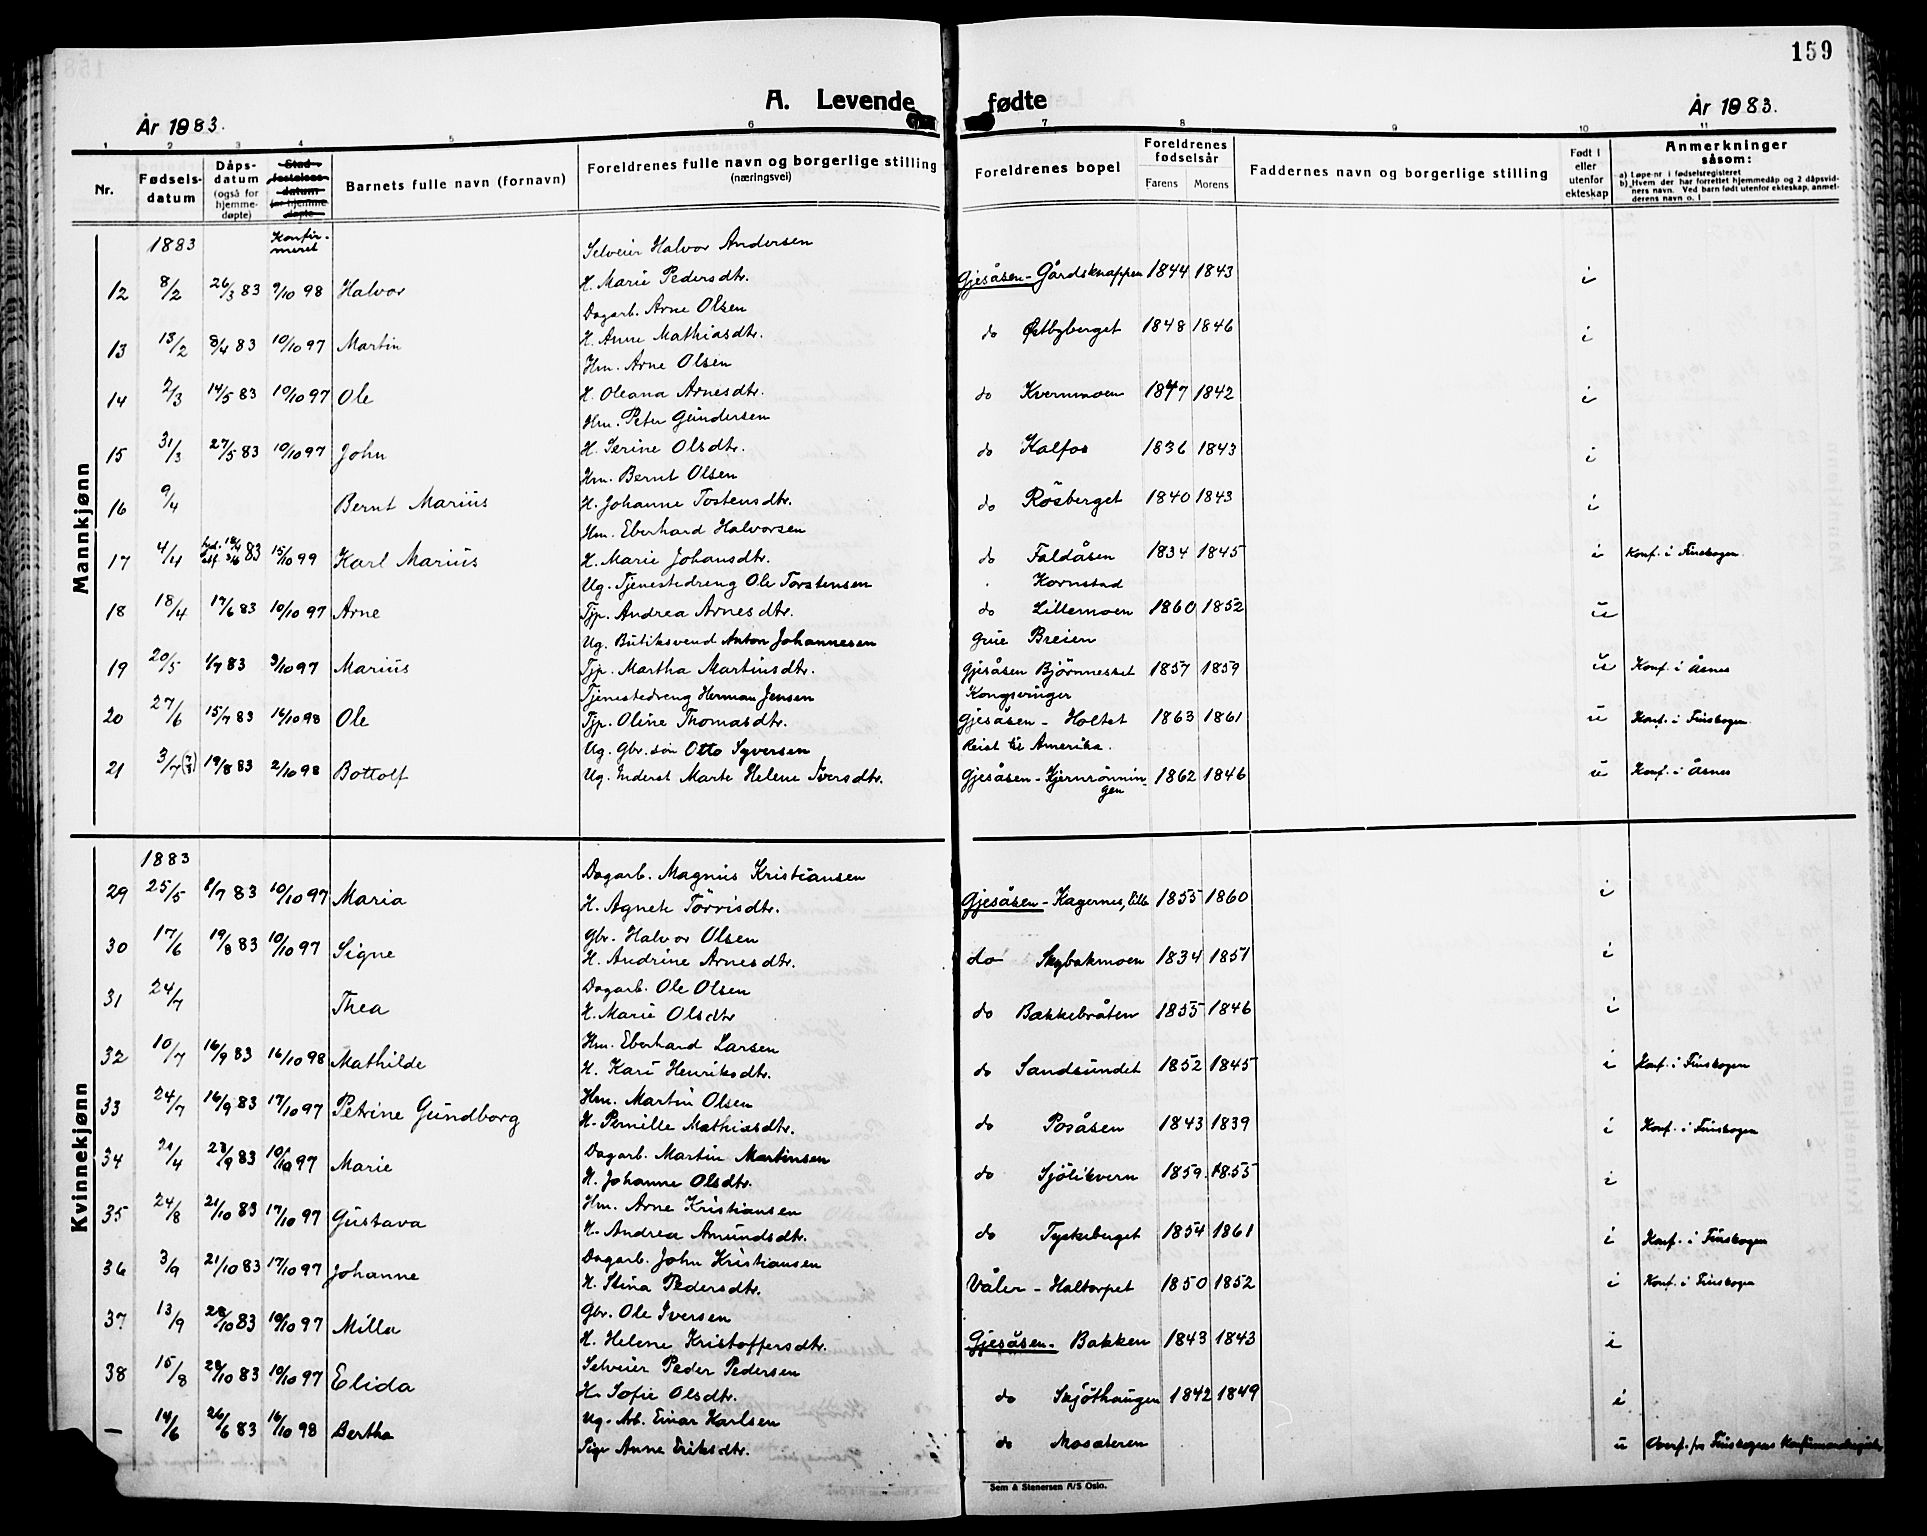 159
A. Levende fødte
År 1983.
År 1983.
1 2 3 4 5 6 7 8 9 10 11
Nr.
Fødsels-datum
Dåps-datum (også for hjemme-døpte)
Stad-festelses-datum for hjemme-døpte
Barnets fulle navn (fornavn)
Foreldrenes fulle navn og borgerlige stilling (næringsvei)
Foreldrenes bopel
Foreldrenes fødselsår
Farens Morens
Faddernes navn og borgerlige stilling
Født i eller utenfor ekteskap
Anmerkninger såsom:
a) Løpe-nr i fødselsregisteret
b) Hvem der har forrettet hjemmedåp og 2 dåpsvid-
ners navn. Ved barn født utenfor ekteskap, anmel-
derens navn o. l
Mannkjønn
1883 Konfir-meret
Selveier Halvor Andersen
12 8/2 26/3 83 9/10 98 Halvor H. Marie Pedersdtr. Gjesåsen - Gårdsknappen 1844 1843 i
Dagarb. Arne Olsen
13 13/2 8/4 83 10/10 97 Martin H. Anne Mathiasdtr. do Østbyberget 1848 1846 i
Hm. Arne Olsen
14 2/3 14/5 83 10/10 97 Ole H. Oleana Arnesdtr. do Kvernmoen 1847 1842 i
Hm. Peter Gundersen
15 31/3 27/5 83 10/10 97 John H. Serine Olsdtr. do Kalfos 1836 1843 i
Hm. Bernt Olsen
16 9/4 Bernt Marius H. Johanne Tostensdtr. do Rösberget 1840 1843 i
Hm. Eberhard Halvorsen
17 4/4 83 15/10 99 Karl Marius H. Marie Johansdtr. do Faldåsen 1834 1845 i Konf. i Finskogen.
Ug. Tjenestedreng Ole Torstensen Kornstad
18 18/4 17/6 83 10/10 97 Arne Tjp. Andrea Arnesdtr. do Lillemoen 1860 1852 u
Ug. Butiksvend Anton Johannesen Grue Breien
19 20/5 1/7 83 3/10 97 Marius Tjp. Martha Martinsdtr. Gjesåsen Bjørnnesset 1857 1859 u Konf. i Åsnes
Tjenestedreng Herman Jensen Kongsvinger
20 27/6 15/7 83 16/10 98 Ole Tjp. Oline Thomasdtr. Gjesåsen - Holtet 1863 1861 u Konf. i Finskogen.
Ug. Gbr. søn Otto Syversen Reist til Amerika.
21 3/7 19/8 83 2/10 98 Bottolf Ug. Inderst Marte Helene Iversdtr. Gjesåsen - Kjernrönnin-gen 1862 1846 u Konf. i Åsnes
Kvinnekjønn
1883
Dagarb. Magnus Kristiansen
29 25/5 8/7 83 10/10 97 Maria H. Agnete Törrisdtr. Gjesåsen - Kagernes, lille 1855 1860 i
Gbr. Halvor Olsen
30 17/6 19/8 83 10/10 97 Signe H. Andrine Arnesdtr. do Skybakmoen 1834 1851 i
Dagarb. Ole Olsen
31 24/7 Thea H. Marie Olsdtr do Bækkebråten 1855 1846 i
Hm. Eberhard Larsen
32 10/7 16/9 83 16/10 98 Mathilde H. Kari Henriksdtr. do Sandsundet 1852 1845 i Konf. i Finskogen
Hm. Martin Olsen
33 24/7 16/9 83 17/10 97 Petrine Gundborg H. Pernille Mathiasdtr. do Posåsen 1843 1839 i Konf. i Finskogen
Dagarb. Martin Martinsen
34 21/4 23/9 83 10/10 97 Marie H. Johanne Olsdtr. do Sjölikvern 1859. 1855 i
Hm. Arne Kristiansen
35 24/8 21/10 83 17/10 97 Gustava H. Andrea Amundsdtr. do Tyskeberget 1854 1861 i Konf. i Finskogen
Dagarb. John Kristiansen
36 3/9 21/10 83 17/10 97 Johanne H. Stina Pedersdtr. Våler - Haltorpet 1850 1852 i Konf. i Finskogen
Gbr. Ole Iversen
37 13/9 28/10 83 10/10 97 Milla H. Helene Kristoffersdtr. Gjesåsen - Bakken 1843 1843 i
Selveier Peder Pedersen
38 15/8 28/10 83 10/10 97 Elida H. Sofie Olsdtr. do Skjöthaugen 1842 1849 i
Ug. Arb. Einar Karlsen
— 14/6 26/6 83 16/10 98 Bertha Pige Anne Eriksdtr. do Mosateren u Overf. fra Finskogens
Sem & Stenersen A/S Oslo.